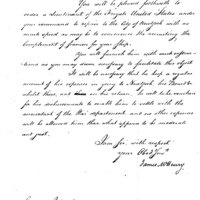 You will be pleased forthwith to
order a Lieutenant of the Frigate United States under
your command to repair to the City of New york with as
much speed as may be to commence the recruiting the
Complement of Seamen for your Ship.
You will furnish him with such instructions
as you may deem necessary to facilitate this object
It will be necessary that he keep a regular
account of his expences in going to New york, his Board &c
whilst there, and on his return, he will take vouchers
for his disbursements to enable him to settle with the
accountant of the War department and no other expences
will be allowed him than what appears to be moderate
and just.
I am Sir, with respect
your Obed Ser
James McHenry